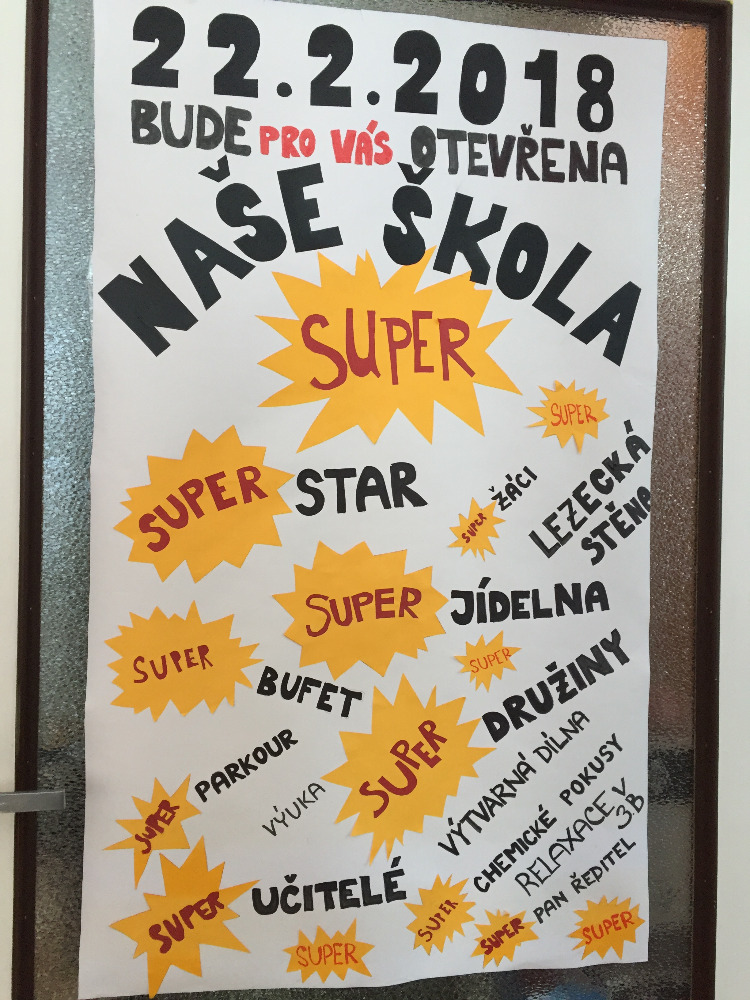 22.2.2018
BUDE PRO VÁS OTEVŘENA
NAŠE ŠKOLA
SUPER
SUPER
SUPER STAR
SUPER ŽÁCI
LEZECKÁ
STĚNA
SUPER JÍDELNA
SUPER
BUFET
SUPER
SUPER
DRUŽINY
PARKOUR
VÝUKA
VÝTVARNÁ DÍLNA
CHEMICKÉ POKUSY
RELAXACE V
3B
SUPER
SUPER UČITELÉ
SUPER
SUPER
SUPER PAN ŘEDITEL
SUPER